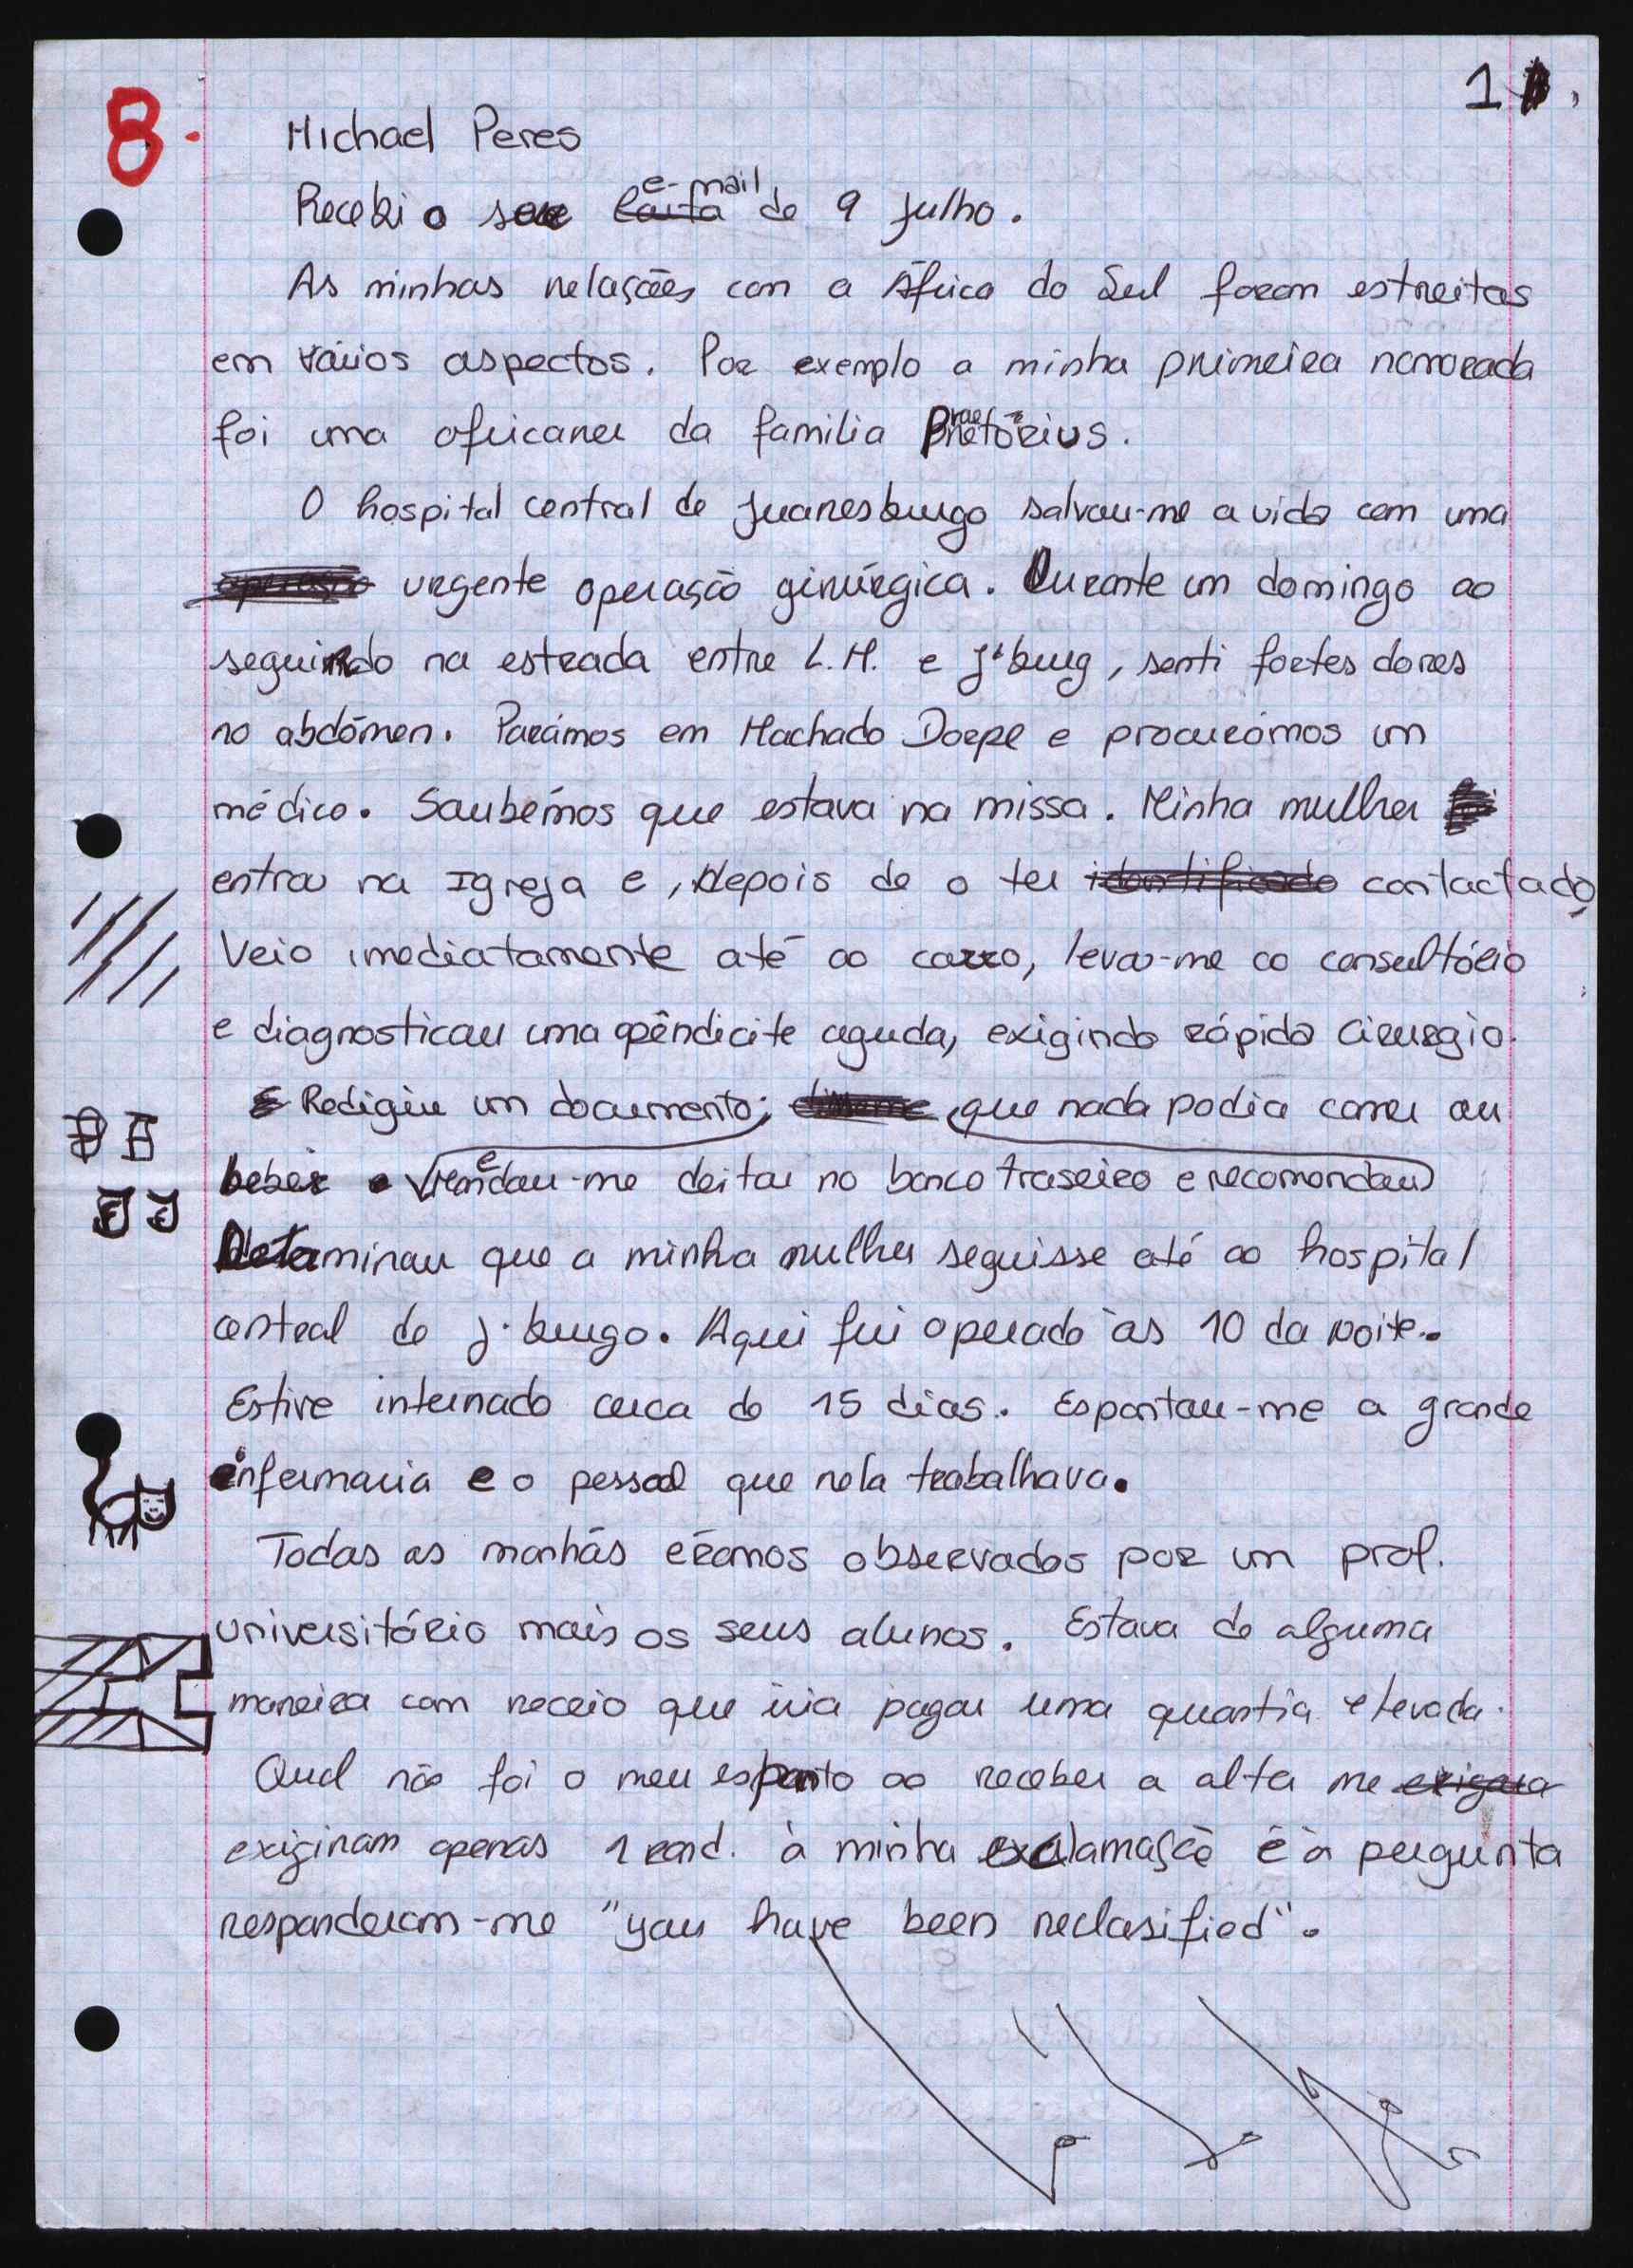 8.
1
Michael Peres
Recebi o seu carta e-mail de 9 julho.
As minhas relações com a África do Sul foram estreitas
em vários aspectos. Por exemplo a minha primeira namorada
foi uma africaner da familia Praetórius.
O hospital central de Juanesburgo salvou-me a vida com uma
operação urgente operação girúrgica. Durante um domingo ao
seguindo na estrada entre L.M. e J'burg, senti fortes dores
no abdómen. Parámos em Machado Dorpe e procurámos um
médico. Soubémos que estava na missa. Minha mulher
entrou na Igreja e, depois de o ter identificado contactado,
Veio imediatamente até ao carro, levou-me ao consultório
e diagnosticou uma apêndicite aguda, exigindo rápida cirurgia.
Redigiu um documento; que nada podia comer ou
beber e mandou-me deitar no banco traseiro e recomendou
Determinou que a minha mulher seguisse até ao hospital
central de J.burgo. Aqui fui operado às 10 da noite.
Estive internado cerca de 15 dias. Espantou-me a grande
enfermaria e o pessoal que nela trabalhava.
Todas as manhãs éramos observados por um prof.
universitário mais os seus alunos. Estava de alguma
maneira com receio que iria pagar uma quantia elevada.
Qual não foi o meu espanto ao receber a alta me exigira
exigiram apenas 1 rand. à minha exclamação e à pergunta
responderam-me "you have been reclasified".